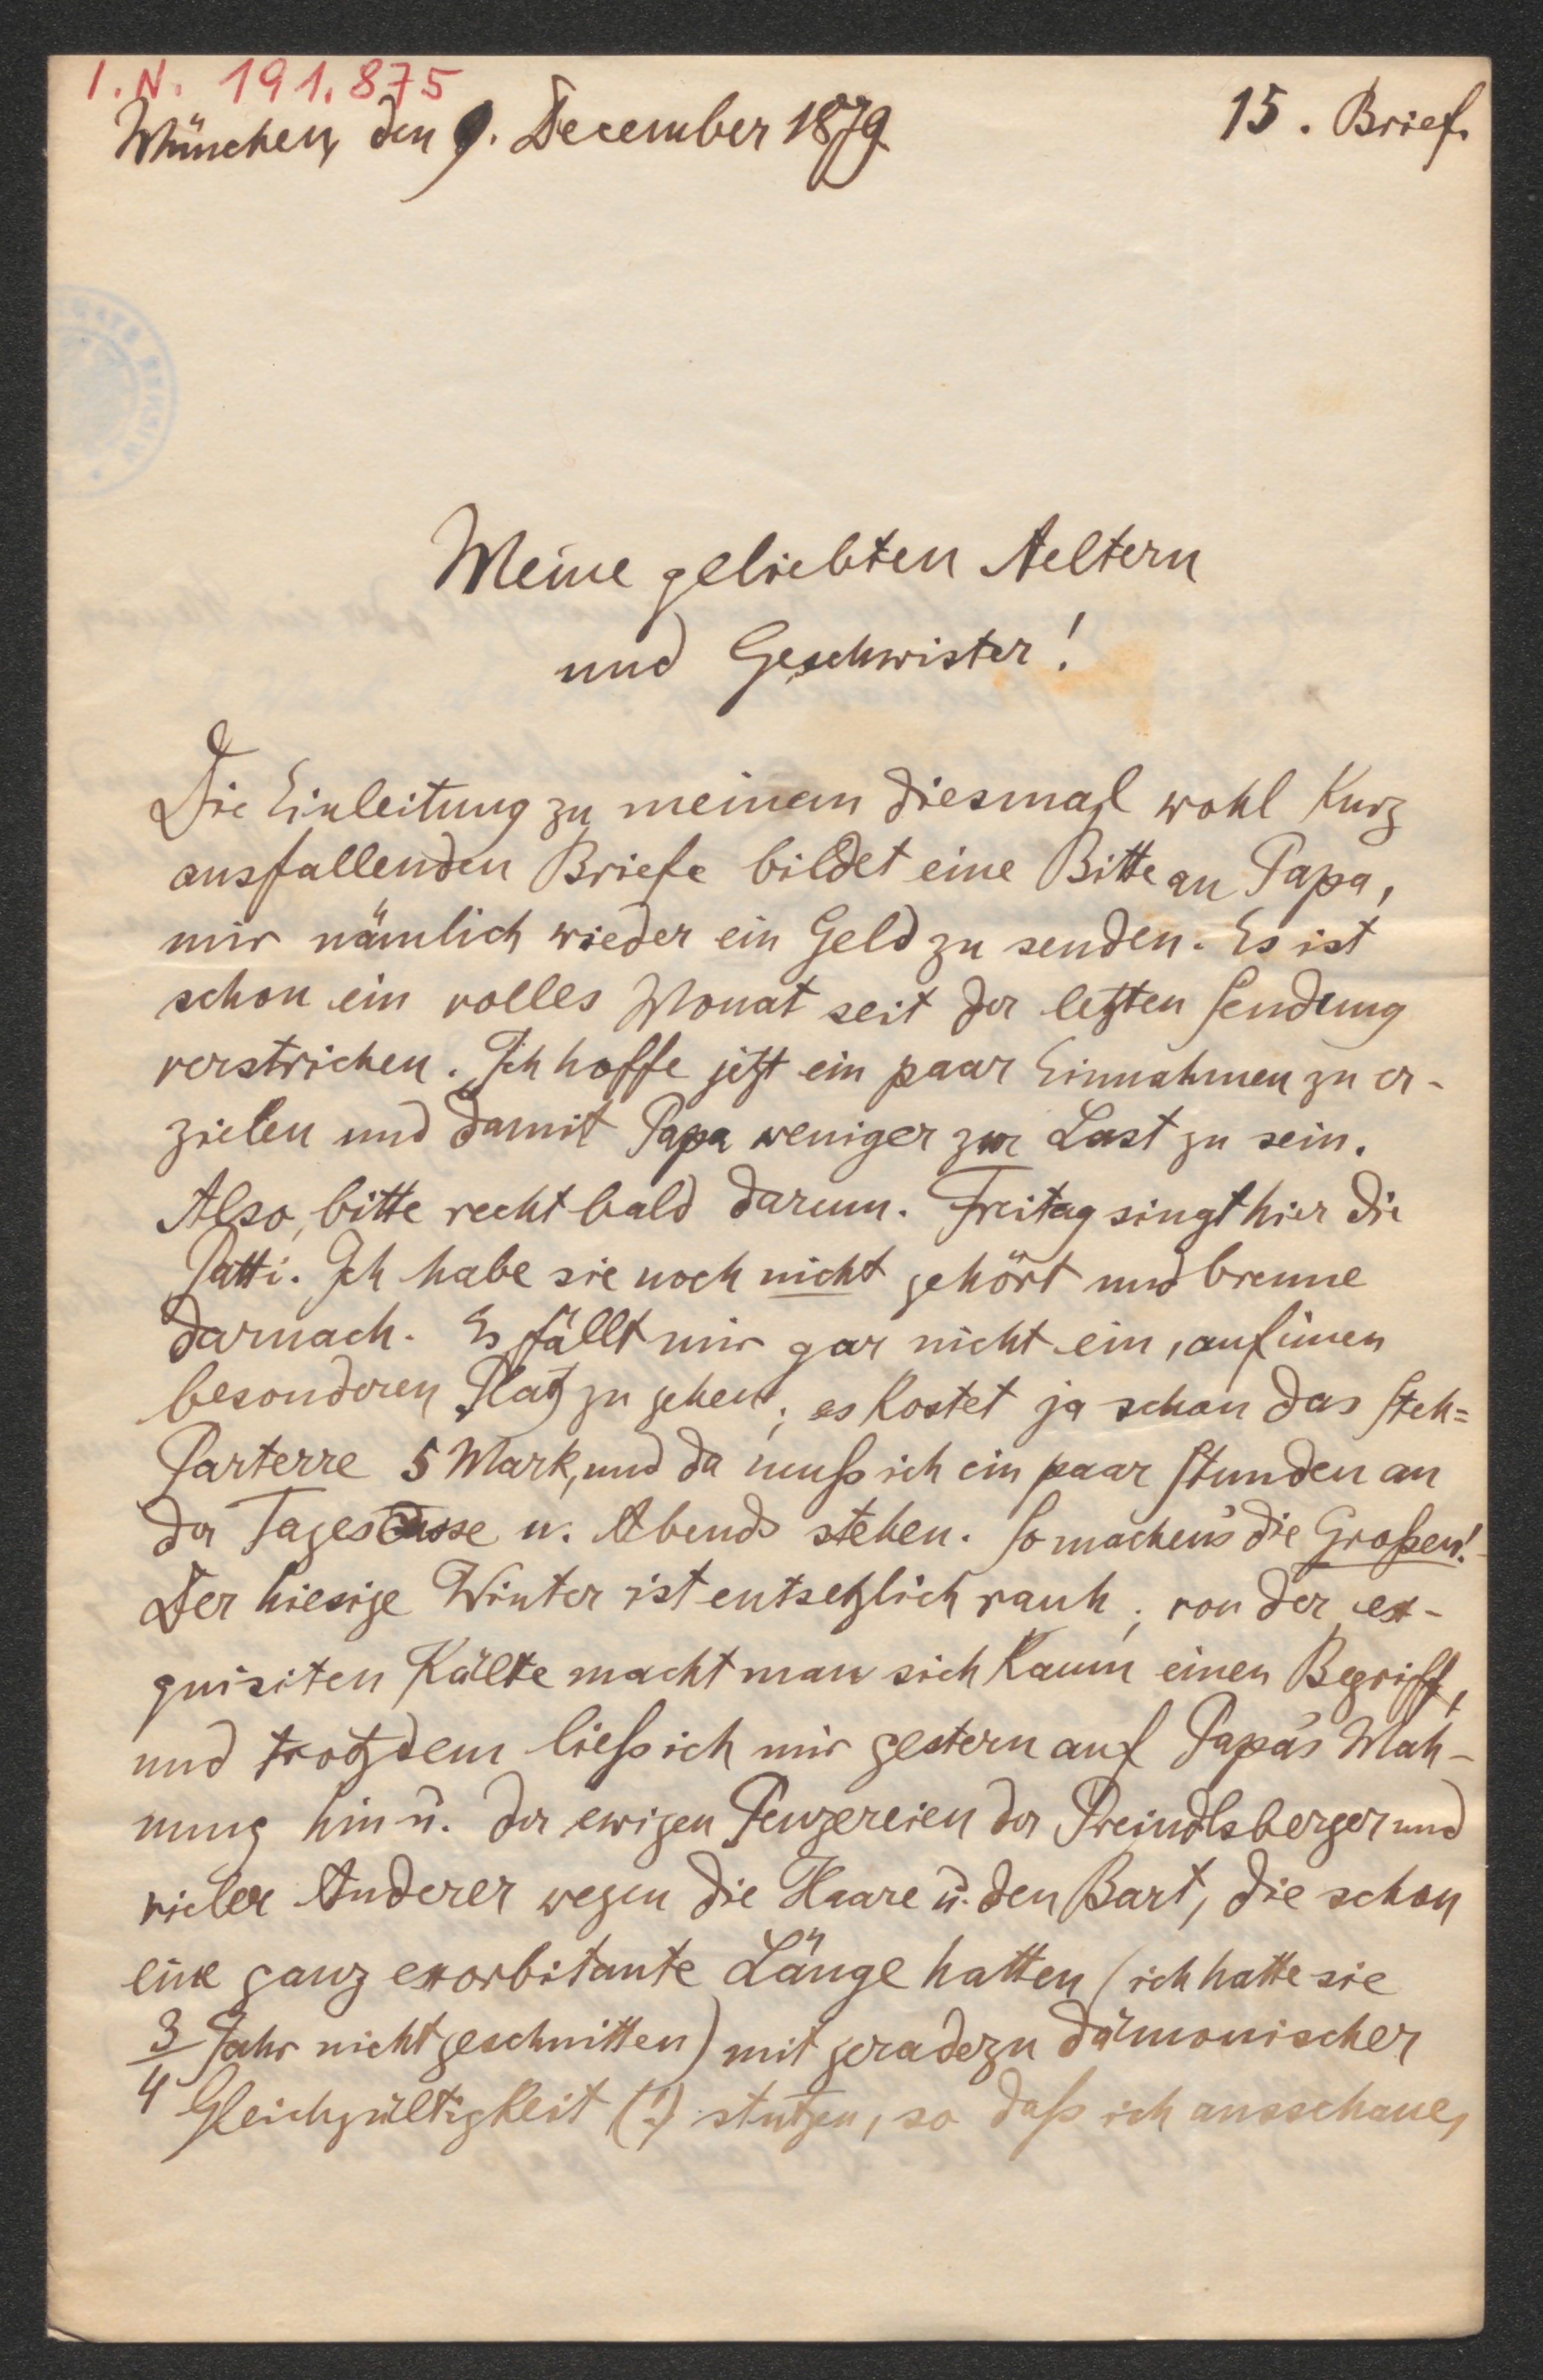 I.N. 191.875
München, den 9. December 1879
15. Brief.
Meine geliebten Aeltern
und Geschwister!
Die Einleitung zu meinem diesmal wohl kurz
ausfallenden Briefe bildet eine Bitte an Papa,
mir nämlich wieder ein Geld zu senden. Es ist
schon ein volles Monat seit der letzten Sendung
verstrichen. Ich hoffe jetzt ein paar Einnahmen zu er-
zielen und damit Papa weniger zur Last zu sein.
Also, bitte recht bald darum. Freitag singt hier die
Patti. Ich habe sie noch nicht gehört und brenne
darnach. Es fällt mir gar nicht ein, auf einen
besonderen Platz zu gehen; es kostet ja schon das Steh=
Parterre 5 Mark, und da muß ich ein paar Stunden an
der Tagescasse u. Abends stehen. So machen's die Großen!
Der hiesige Winter ist entsetzlich rauh; von der ex-
quisiten Kälte macht man sich kaum einen Begriff,
und trotzdem ließ ich mir gestern auf Papa's Mah-
nung hin u. der ewigen Penzereien der Preindlsberger und
vieler Anderer wegen die Haare u. den Bart, die schon
eine ganz exorbitante Länge hatten (ich hatte sie
3/4 Jahr nicht geschnitten) mit geradezu dämonischer
Gleichgültigkeit (!) stutzen, so daß ich ausschaue,